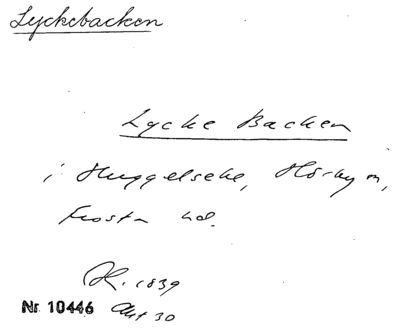 Lyckebacken
Lycke Backen
i Huggelseke, Hörby sn,
Frosta hd.
R. 1839
Nr 10446 Akt 30